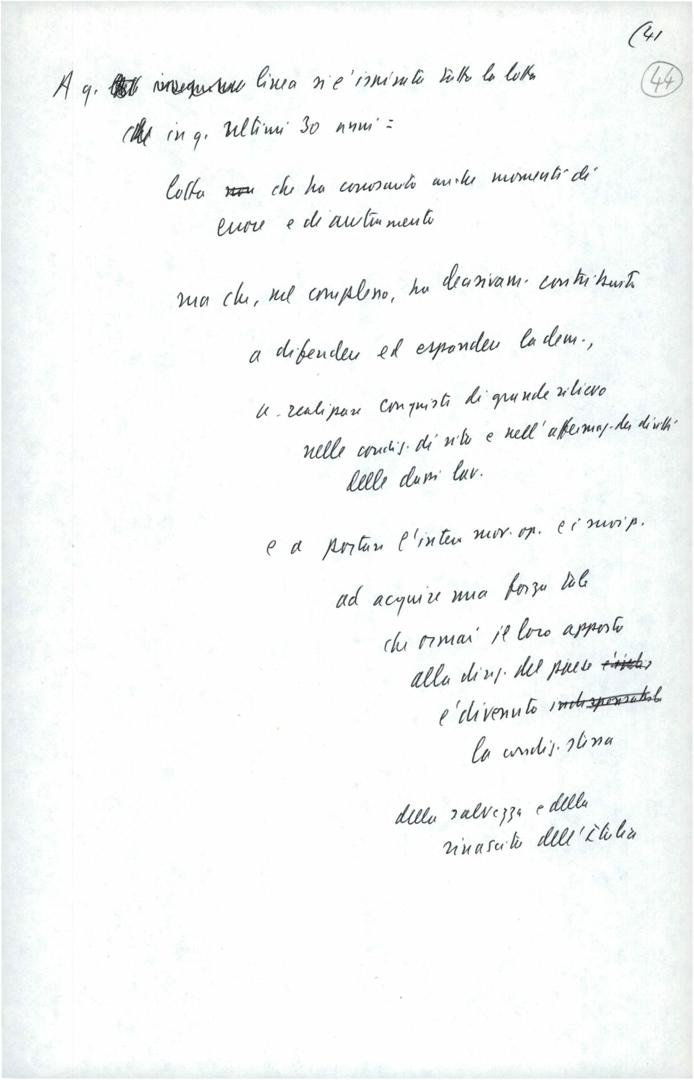 (41
44
A q. linea si è ispirata tutta la lotta
che in q. ultimi 30 anni =
lotta non che ha conosciuto anche momenti di
errore e di
ma che, nel complesso, ha decisivam. contribuito
a difendere ed espandere la dem.,
a realizzare conquiste di grande rilievo
nelle condiz. di vita e nell'affermaz. dei diritti
delle classi lav.
e a portare l'intero mov. op. e i suoi p.
ad acquisire una forza tale
che ormai il loro apporto
alla direz. del paese
è divenuto indispensabile
la condiz. stessa
della salvezza e della
rinascita dell'Italia